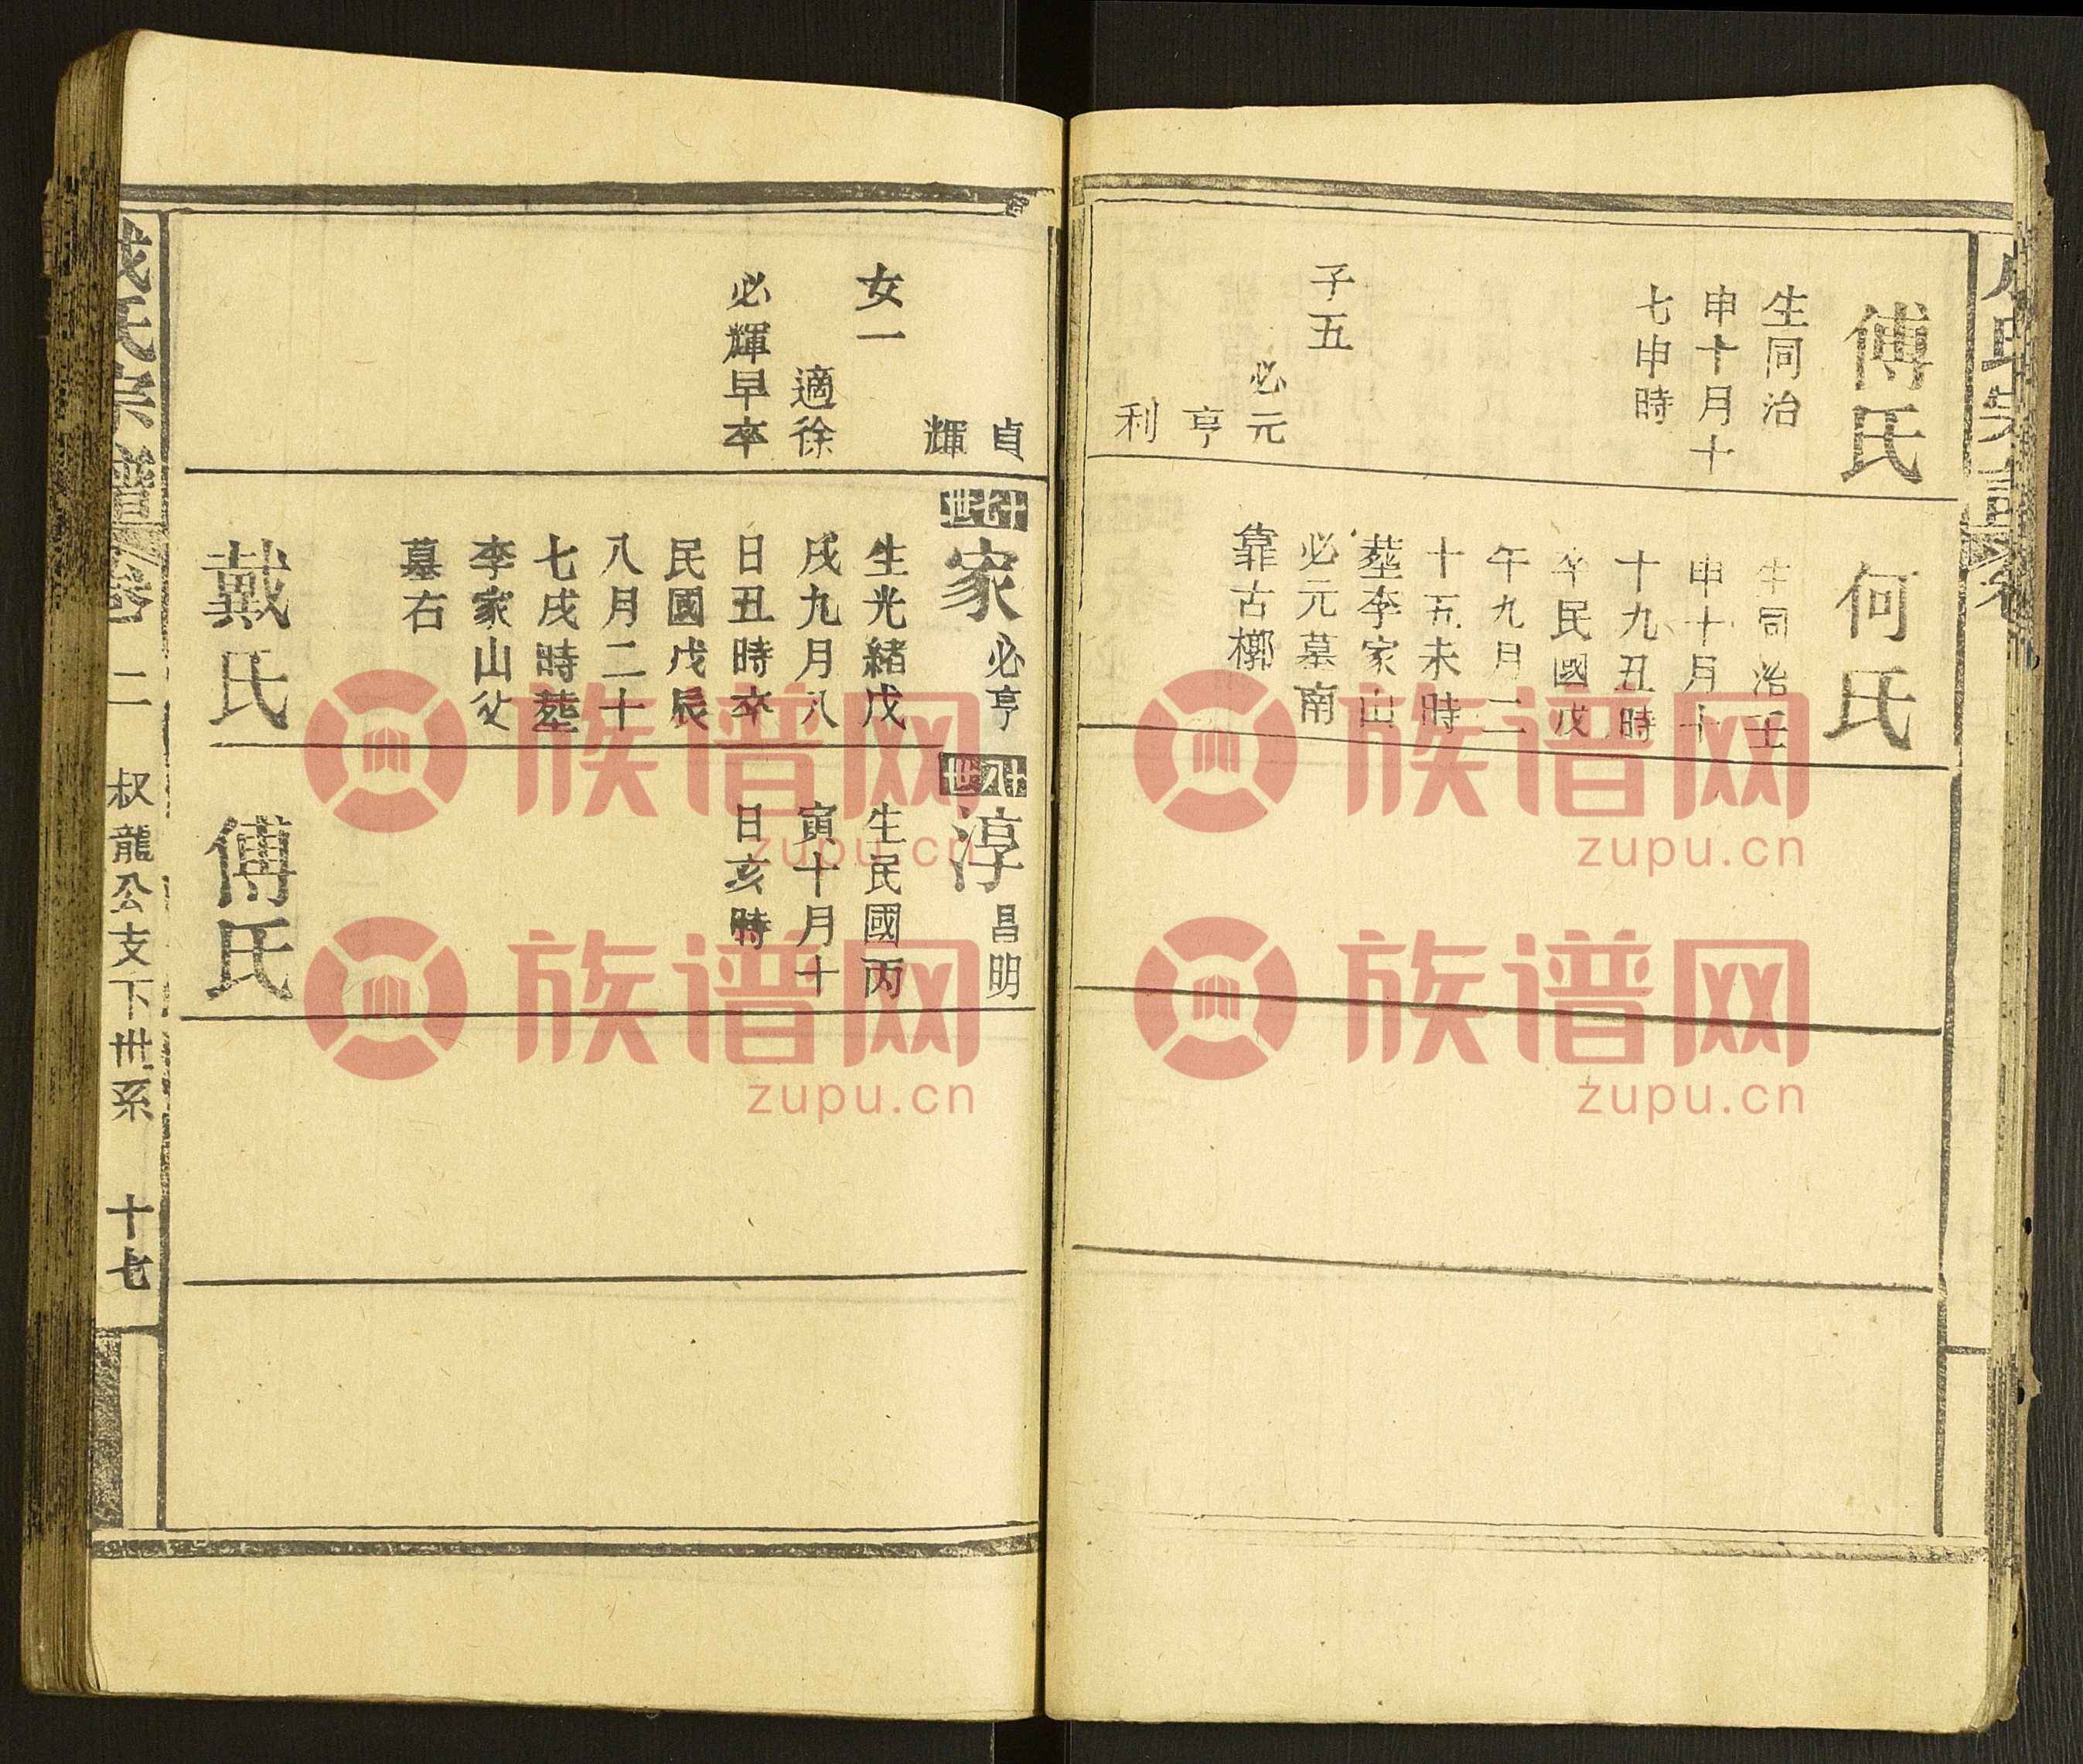 傅氏
生同治
申十月十
七申時
子五
必元
亨
利
何氏
生同治壬
申十月十
十九丑時
卒民國戊
午九月二
十五未時
塟李家山
必元墓南
靠古槨
貞
輝
女一
適徐
必輝早卒
十七世
家必亨
生光緒戊
戌九月八
日丑時卒
民國戊辰
八月二十
七戌時塟
李家山父
墓右
戴氏
十八世
淳昌明
生民國丙
寅十月十
日亥時
傅氏
氏宗譜卷二 叔龍公支下世系 十七
族谱网
zupu.cn
族谱网
zupu.cn
族谱网
zupu.cn
族谱网
zupu.cn